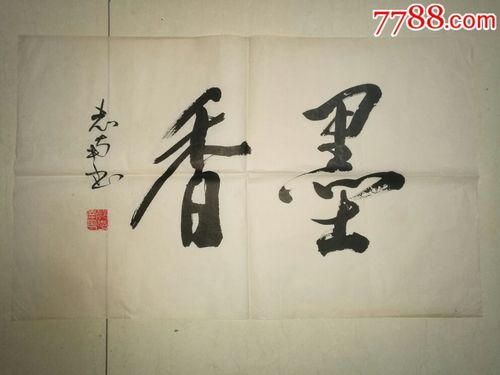 7788.com
墨香
书